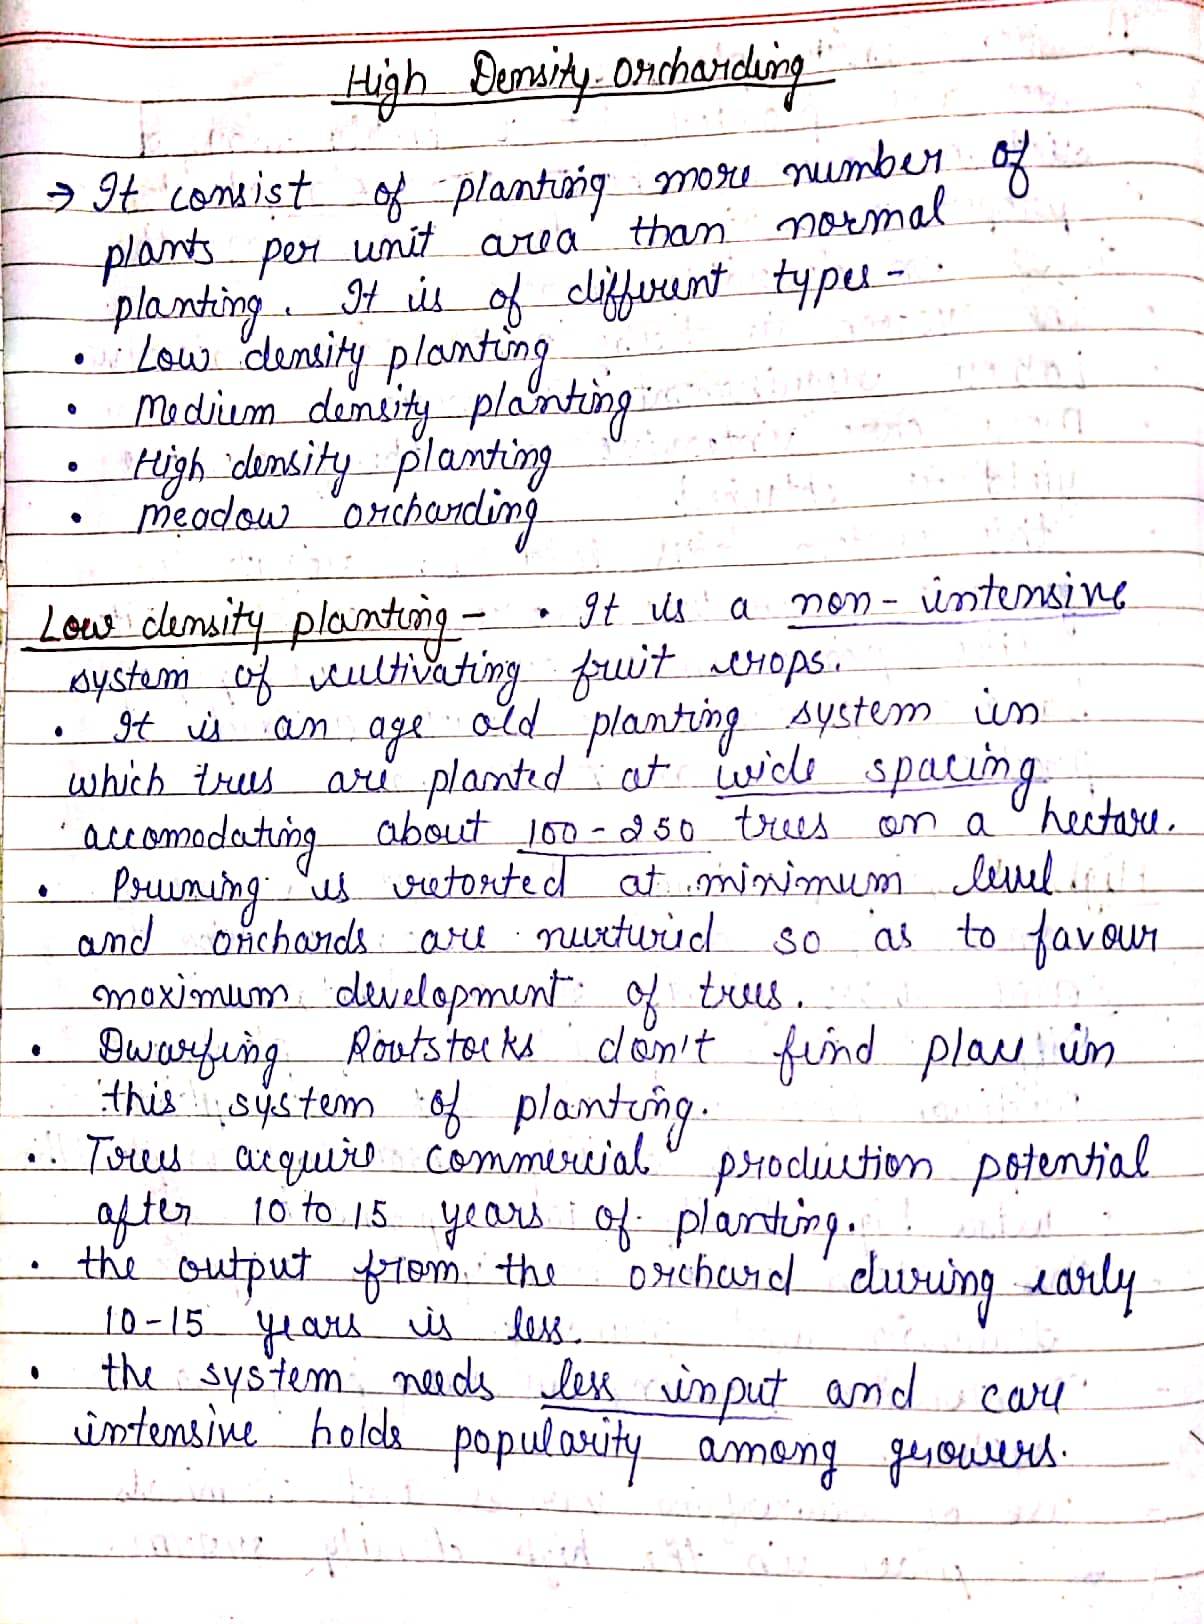 High Density Orcharding
→ It consist of planting more number of
plants per unit area than normal
planting. It is of different types-
• Low density planting
• Medium density planting
• High density planting
• Meadow orcharding
Low density planting - • It is a non-intensive
system of cultivating fruit crops.
• It is an age old planting system in
which trees are planted at wide spacing
accomodating about 100-250 trees on a hectare.
• Pruning is retorted at minimum level
and orchards are nurtured so as to favour
maximum development of trees.
• Dwarfing Rootstocks don't find place in
this system of planting.
• Trees acquire commercial production potential
after 10 to 15 years of planting.
• the output from the orchard during early
10-15 years is less.
• the system needs less input and care
intensive holds popularity among growers.